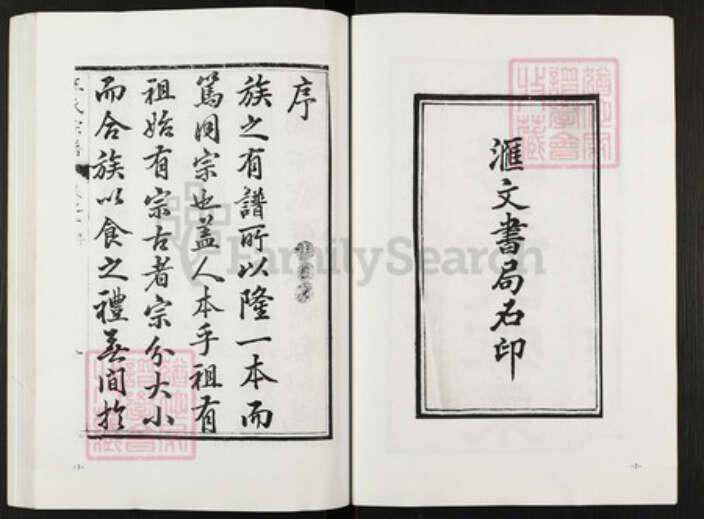 滙文書局石印
序
族之有譜所以隆一本而
篤同宗也盖人本乎祖有
祖始有宗古者宗分大小
而合族以食之禮無間於
氏宗譜
FamilySearch